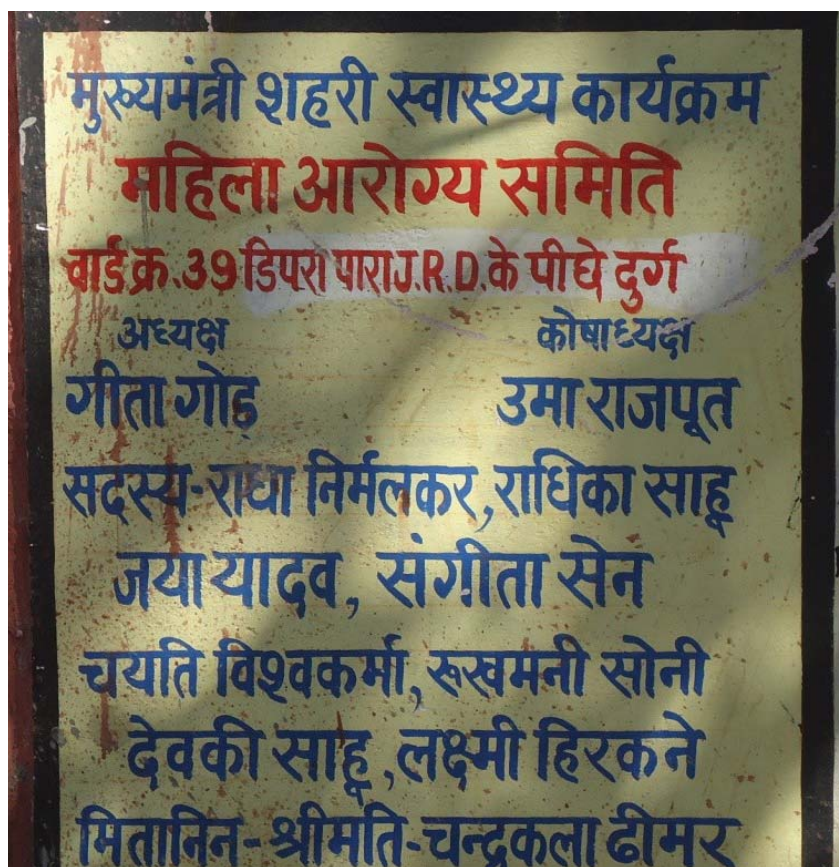 मुख्यमंत्री शहरी स्वास्थ्य कार्यक्रम
महिला आरोग्य समिति
वार्ड क्र.39 डिपरा पारा J.R.D. के पीछे दुर्ग
अध्यक्ष कोषाध्यक्ष
गीता गोड़ उमा राजपूत
सदस्य-राधा निर्मलकर, राधिका साहू
जया यादव, संगीता सेन
चयति विश्वकर्मा, रूखमनी सोनी
देवकी साहू, लक्ष्मी हिरकने
मितानिन-श्रीमति-चन्द्रकला ढीमर